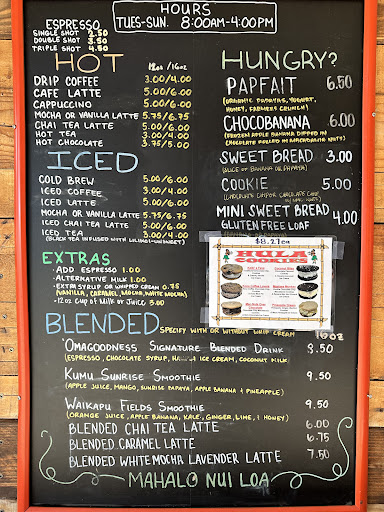 HOURS
TUES-SUN. 8:00AM-4:00PM
ESPRESSO
SINGLE SHOT 2.50
DOUBLE SHOT 3.50
TRIPLE SHOT 4.50
HOT 12oz/16oz
DRIP COFFEE 3.00/4.00
CAFE LATTE 5.00/6.00
CAPPUCCINO 5.00/6.00
MOCHA OR VANILLA LATTE 5.75/6.75
CHAI TEA LATTE 5.00/6.00
HOT TEA 3.00/4.00
HOT CHOCOLATE 3.75/5.00
ICED
COLD BREW 5.00/6.00
ICED COFFEE 3.00/4.00
ICED LATTE 5.00/6.00
MOCHA OR VANILLA LATTE 5.75/6.75
ICED CHAI TEA LATTE 5.00/6.00
ICED TEA 3.00/4.00
(BLACK TEA INFUSED WITH LILIKOI-
EXTRAS
· ADD ESPRESSO 1.00
· ALTERNATIVE MILK 1.00
· EXTRA SYRUP OR WHIPPED CREAM 0.75
(VANILLA, CARAMEL, MOCHA, WHITE MOCHA)
· 12oz CUP of MILK or JUICE 3.00
HUNGRY?
PAPFAIT 6.50
(ORGANIC PAPAYAS, YOGURT,
HONEY, FARMERS CRUNCH)
CHOCOBANANA 6.00
(FROZEN APPLE BANANA DIPPED IN
CHOCOLATE ROLLED IN MACADAMIA NUTS)
SWEET BREAD 3.00
(SLICE OF BANANA OR PAPAYA)
COOKIE 5.00
(CHOCOLATE CHIP OR CHOCOLATE CHIP
MINI SWEET BREAD 4.00
GLUTEN FREE LOAF
$8.27ea
HULA
COOKIES
BLENDED SPECIFY WITH OR WITHOUT WHIP CREAM 16oz
'OMAGOODNESS SIGNATURE BLENDED DRINK 8.50
(ESPRESSO, CHOCOLATE SYRUP, ICE CREAM, COCONUT MILK
KUMU SUNRISE SMOOTHIE 9.50
(APPLE JUICE, MANGO, SUNRISE PAPAYA, APPLE BANANA & PINEAPPLE)
WAIKAPU FIELDS SMOOTHIE 9.50
(ORANGE JUICE, APPLE BANANA, KALE, GINGER, LIME, & HONEY)
BLENDED CHAI TEA LATTE 6.00
BLENDED CARAMEL LATTE 6.75
BLENDED WHITE MOCHA LAVENDER LATTE 7.50
MAHALO NUI LOA